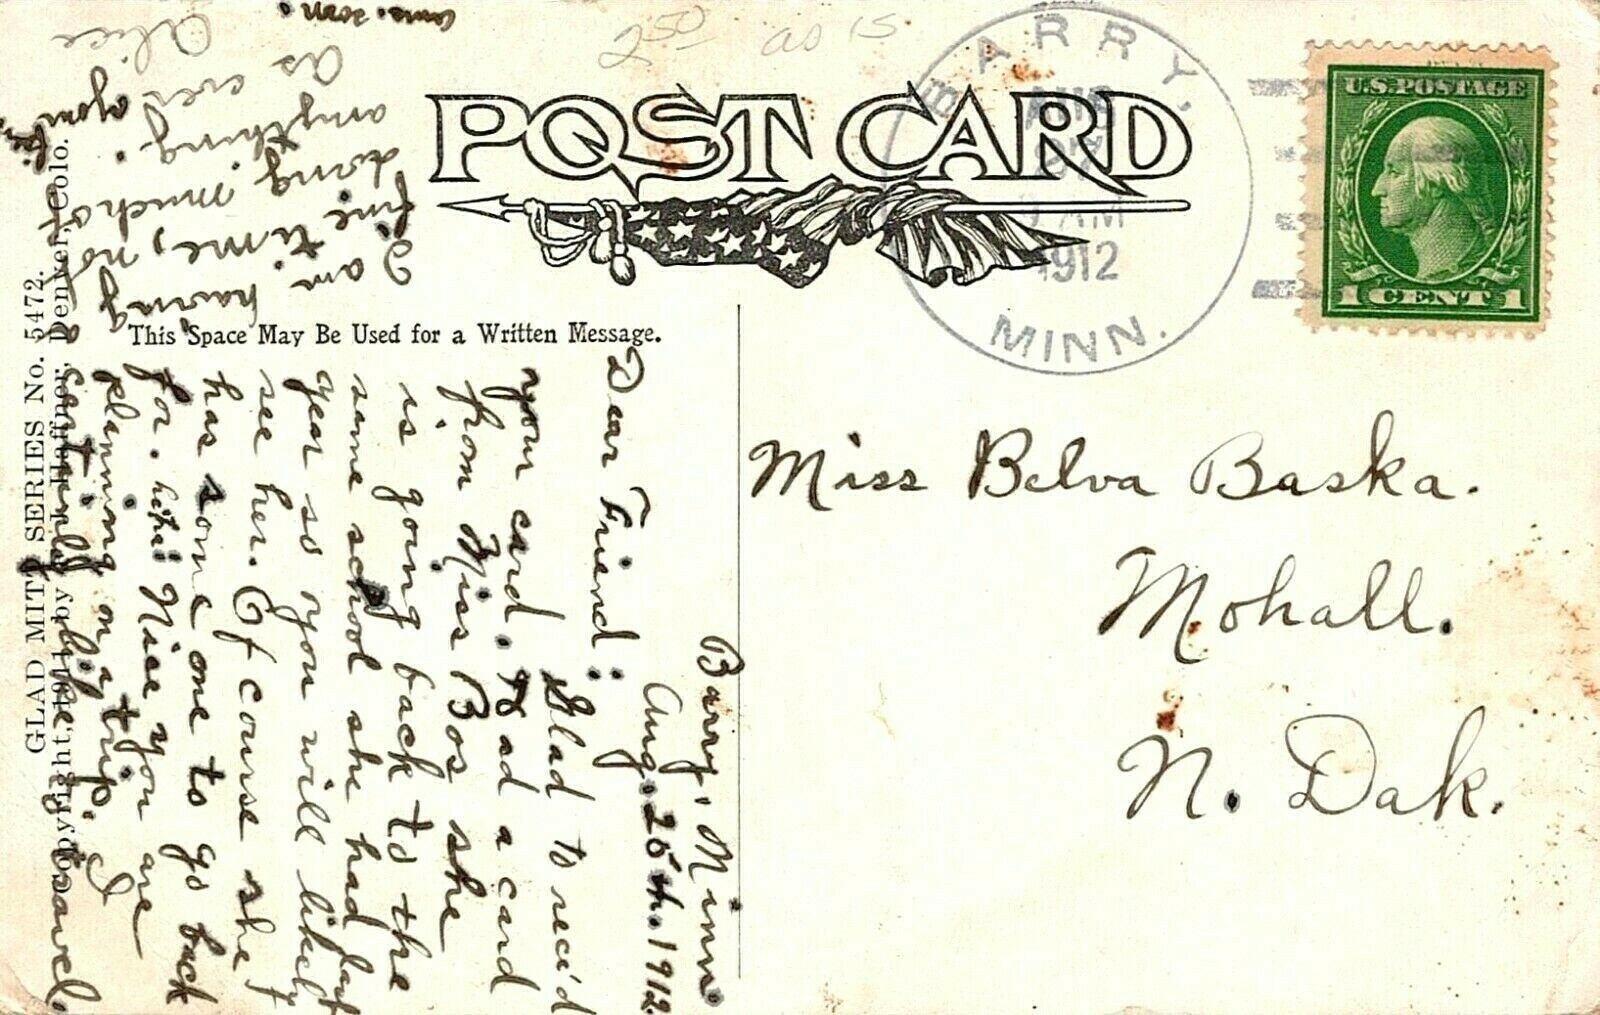 2 50 as is
POST CARD
This Space May Be Used for a Written Message.
BARRY,
AUG
27
AM
1912
MINN.
U.S. POSTAGE
1 CENT 1
Miss Belva Baska.
Mohall.
N. Dak.
Barry, Minn.
Aug. 26th. 1912.
Dear Friend:
Glad to rec'd
your card. Had a card
from Miss Bos she
is going back to the
same school she had last
year so you will likely
see her. Of course she
has some one to go back
for. he he! Nice you are
planning on a trip. I
certainly like to travel.
I am having a
fine time, not
doing much of
anything.
As ever your fr.
Alice
Ans. soon.
GLAD MITT SERIES No. 5472.
Copyright, 1911, by H. H. Denver, Colo.